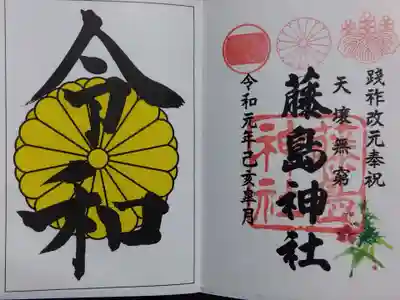 踐祚改元奉祝
天壤無窮
藤島神社
藤島神社
令和元年己亥皐月
令和